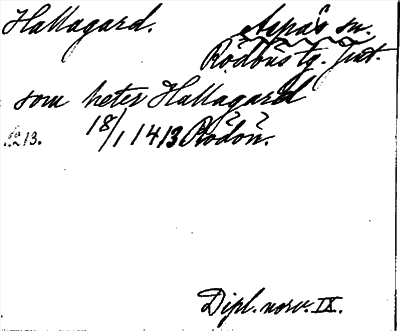 Hallagard. Aspås sn.
Rödöns tg. Jmt.
som heter Hallagard
18/1 1413 Rödön.
Dipl. norv. IX.